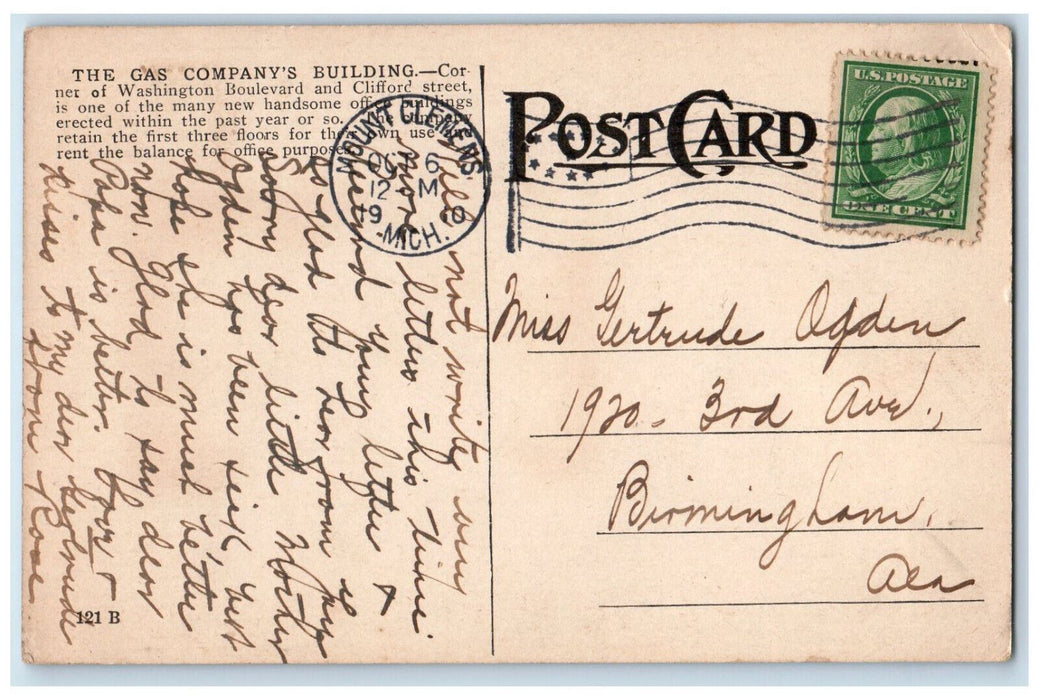 THE GAS COMPANY'S BUILDING.—Cor-
ner of Washington Boulevard and Clifford street,
is one of the many new handsome office buildings
erected within the past year or so. The company
retain the first three floors for their own use and
rent the balance for office purposes.
POST CARD
U.S. POSTAGE
ONE CENT
MOUNT CLEMENS,
OCT 6
12 M
1910
MICH.
Miss Gertrude Ogden
1920 - 3rd Ave.,
Birmingham,
Ala
Will not write any
more letters this time
Received your letter &
so glad to hear from
sorry dear little Mother
Ogden has been sick, but
hope she is much better
now. Glad to say dear
Papa is better. Love &
kisses to my dear Gertrude
from Rose
121 B